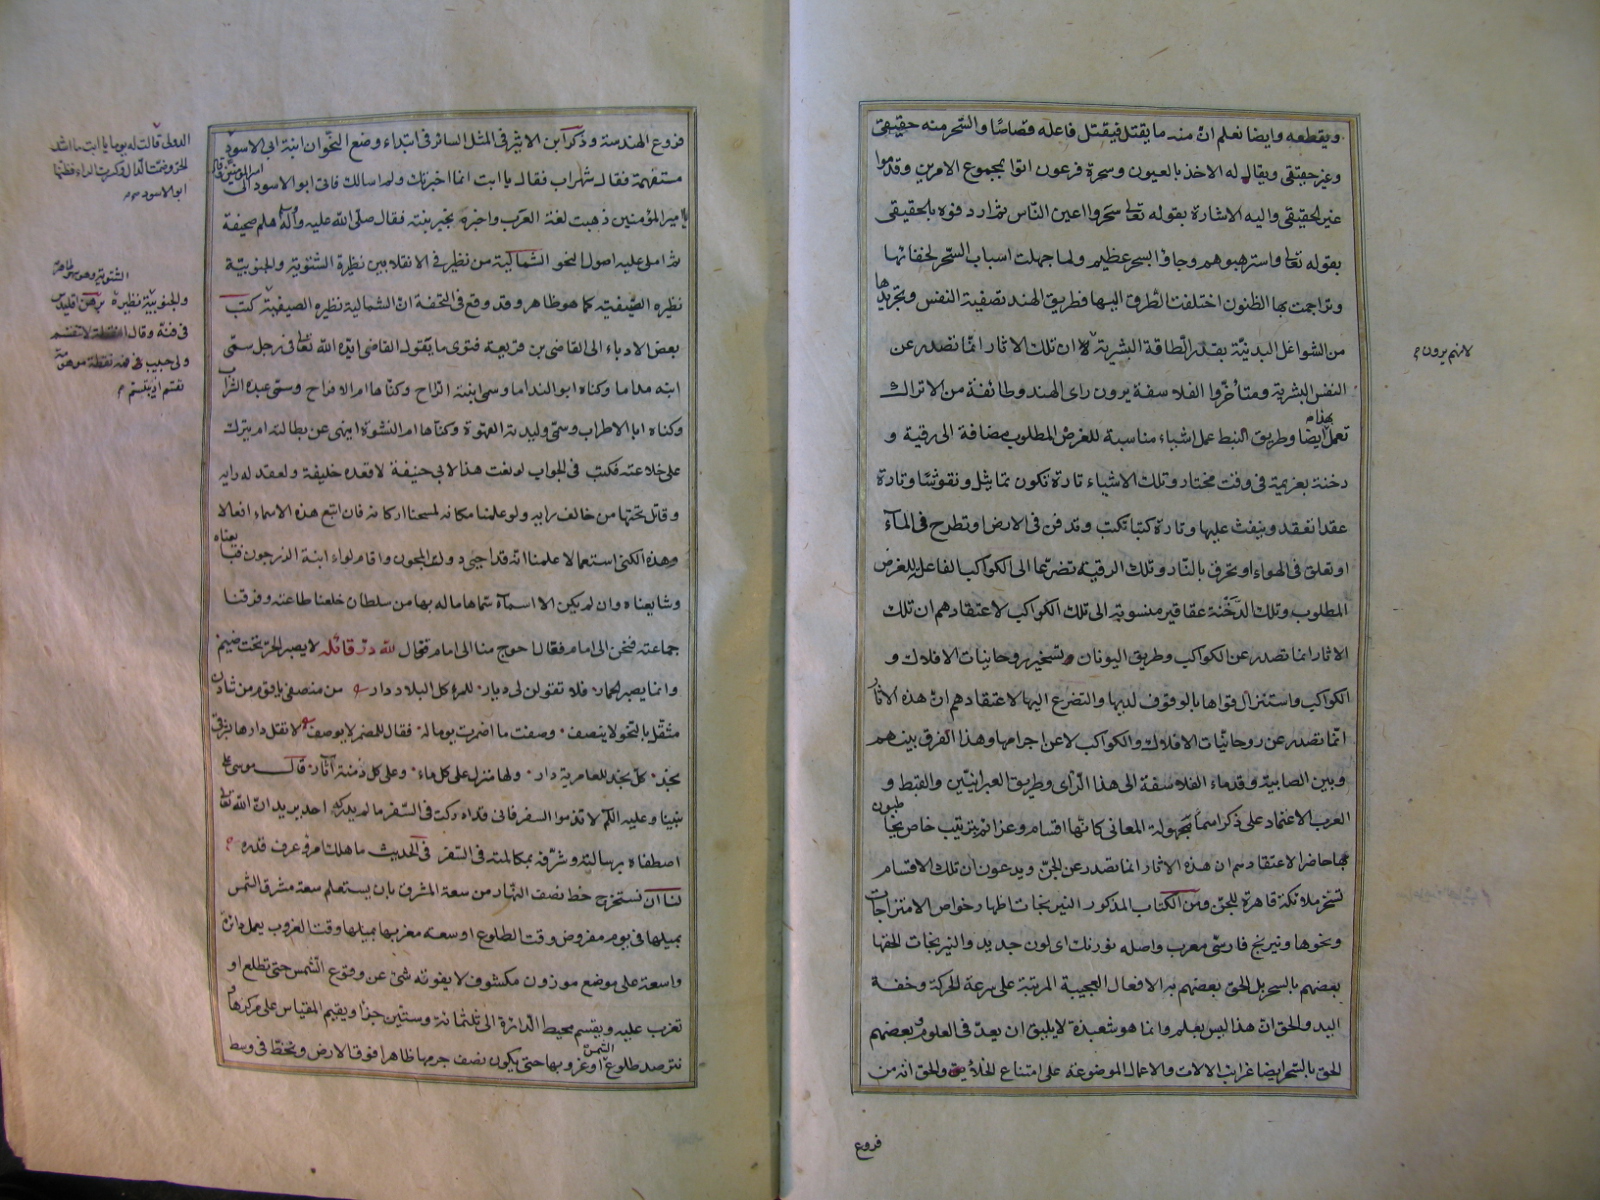 ويقطعه وايضا نعلم انّ منه ما يقتل فيقتل فاعله قصاصًا والسّحر منه حقيقى
وغير حقيقى ويقال له الاخذ بالعيون وسحرة فرعون اتوا بمجموع الامرين وقدموا
غير الحقيقى واليه الاشارة بقوله تعالى سحروا اعين النّاس ثم اردفوه بالحقيقى
بقوله تعالى واسترهبوهم وجاؤا بسحر عظيم ولما جهلت اسباب السّحر لخفائها
وتراجمت بها الظنون اختلفت الطّرق اليها فطريق الهند تصفية النفس وتجريدها
من الشواغل البدنيّة بقدر الطّاقة البشرية لان تلك الاثار انّما تصدر عن
لانهم يرون
النفس البشرية ومتأخّروا الفلاسفة يرون راى الهند وطائفة من الاتراك
تعمل بهذا ايضا وطريق النبط عمل اشياء مناسبة للغرض المطلوب مضافة الى رقية و
دخنة بعزيمة فى وقت مختار وتلك الاشياء تارة تكون تماثيل ونقوشًا وتارة
عقدا تعقد وينفث عليها وتارة كتبا تكتب وتدفن فى الارض وتطرح فى المآء
او تعلق فى الهواء او تحرق بالنّار وتلك الرقية تضرّعا الى الكواكب الفاعل للغرض
المطلوب وتلك الدّخنة عقاقير منسوبة الى تلك الكواكب لاعتقادهم ان تلك
الاثار انما تصدر عن الكواكب وطريق اليونان تسخير روحانيات الافلاك و
الكواكب واستنزال قواها بالوقوف لديها والتضرع اليها لاعتقادهم انّ هذه الاثار
انّما تصدر عن روحانيّات الافلاك والكواكب لا عن اجرامها وهذا الفرق بينهم
وبين الصابية وقدماء الفلاسفة الى هذا الرّاى وطريق العبرانيّين والقبط و
العرب الاعتماد على ذكر اسماء مجهولة المعانى كانّها اقسام وعزائم بترتيب خاص يخاطبون
بها حاضرا لاعتقادهم ان هذه الاثار انما تصدر عن الجنّ ويدعون ان تلك الاقسام
تسخر ملائكة قاهرة للجنّ ومن الكتاب المذكور النيرنجات اظهار خواص الامتزاجات
ونحوها ونيرنج فارسىّ معرب واصله نورنك اى لون جديد والنيرنجات الحقها
بعضهم بالسحر بل الحق بعضهم به الافعال العجيبة المرتبة على سرعة الحركة وخفة
اليد والحق انّ هذا ليس بعلم وانما هو شعبذة لا يليق ان يعدّ فى العلوم وبعضهم
الحق بالسّحر ايضا غرائب الالات والاعمال الموضوعة على امتناع الخلاء والحق انه من
فروع
فروع الهندسة وذكر ابن الاثير فى المثل السائر فى ابتداء وضع النحو ان ابنة ابى الاسود
الدولى قالت له يوما يا ابت ما اشد
الحر وضمت الدال وكسرت الراء فظنها
ابو الاسود
مستفهمة فقال شهر اب فقالت يا ابت انما اخبرتك ولم اسالك فاتى ابو الاسود الى امير المؤمنين فقال
يا امير المؤمنين ذهبت لغة العرب واخبره بخبر بنته فقال صلّى الله عليه وآله هلم صحيفة
ثم املى عليه اصول النحو الشمالية من نظير فى الانقلابين نظيرة الشتوية والجنوبيّة
الشتوية وهو
والجنوبيّة نظيرة
فى فنّه وقال النقطة لا تنقسم
ولى حبيب فى فمه نقطة موهومة
تقسم اذ يبتسم
نظيره الصّيفية كما هو ظاهر وقد وقع فى التحفة انّ الشمالية نظيره الصيفية كتب
بعض الادباء الى القاضى بن قريعة فتوى ما يقول القاضى ايّده الله تعالى فى رجل سمّى
ابنه مداما وكناه ابو الندامى وسمى ابنته الرّاح وكنّاها ام الافراح وسمّى عبده الشراب
وكناه ابا الاطراب وسمّى وليدته القهوة وكنّاها ام النشوة اينهى عن بطالته ام يترك
على خلاعته فكتب فى الجواب لو نعت هذا لابى حنيفة لاقعده خليفة ولعقد له راية
وقاتل تحتها من خالف رايه ولو علمنا مكانه لمسحنا اركانه فان اتبع هذه الاسماء افعالا
وهذه الكنى استعمالا علمنا انّه قد احيى دولة المجون واقام لواء ابنة الزرجون فبايعناه
وشايعناه وان لم يكن الا اسمآء سمّاها ما له بها من سلطان خلعنا طاعته وفرقنا
جماعته فنحن الى امام فعّال احوج منا الى امام قوّال لله درّ قائله لا يصبر الحرّ تحت ضيم
وانما يصبر الحمار فلا تقولن لى ديار للمرء كل البلاد دار من منصفى يا قوم من شادن
مشتغل بالنحو لا ينصف وصفت ما اضمرت يوما له فقال لى المضمر لا يوصف لا تقل دارها بشرقى
نجد كلّ نجد للعامرية دار ولها منزل على كل ماء وعلى كل دمنة آثار قال موسى على
نبينا وعليه السلام لا تذموا السفر فانى قد ادركت فى السّفر ما لم يدركه احد يريد انّ الله تعالى
اصطفاه برسالته وشرّفه بمكالمته فى السّفر فى الحديث ما هلك امرؤ عرف قدره
لنا ان نستخرج خط نصف النّهار من سعة المشرق بان يستعلم سعة مشرق الشمس
بميلها فى يوم مفروض وقت الطلوع او سعته مغربها بميلها وقت الغروب يعمل دائرة
واسعة على موضع موزون مكشوف لا يفوته شئ عن وقوع الشّمس حتى تطلع او
تغرب عليه ويقسم محيط الدّائرة الى ثلثمائة وستّين جزءًا ويقيم المقياس على مركزها و
نترصد طلوع الشمس او غروبها حتى يكون نصف جرمها ظاهرا فوق الارض ونخطّ فى وسط